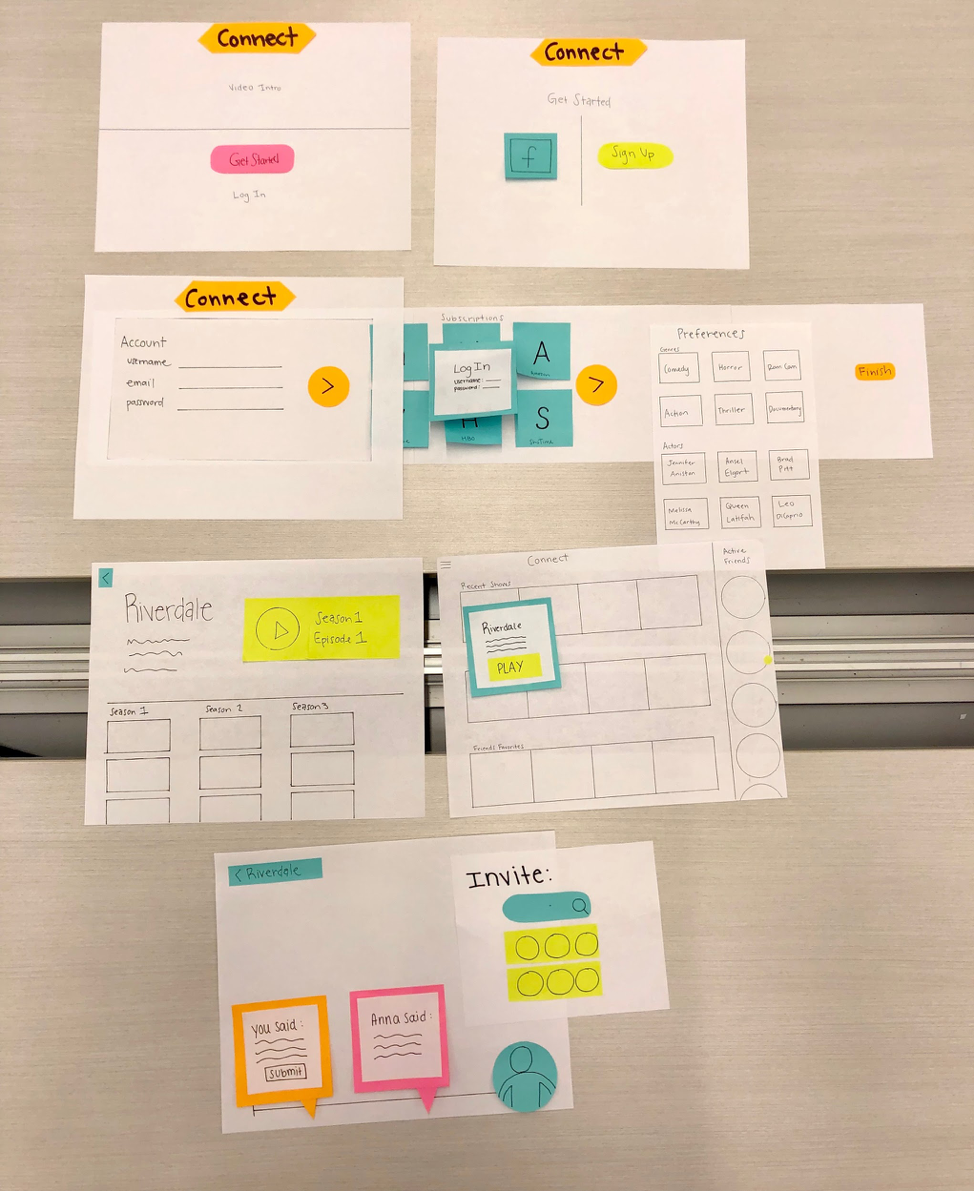 Connect
Video Intro
Get Started
Log In
Connect
Get Started
f
Sign Up
Connect
Account
username
email
password
>
Subscriptions
A
Log In
username:
password:
H
HBO
S
ShoTime
>
Preferences
Genres
Comedy
Horror
Rom Com
Action
Thriller
Documentary
Actors
Jennifer
Aniston
Ansel
Elgort
Brad
Pitt
Melissa
McCarthy
Queen
Latifah
Leo
DiCaprio
Finish
<
Riverdale
Season 1
Episode 1
Season 1
Season 2
Season 3
Connect
Recent Shows
Riverdale
PLAY
Friends Favorites
Active
Friends
< Riverdale
Invite:
you said:
submit
Anna said: